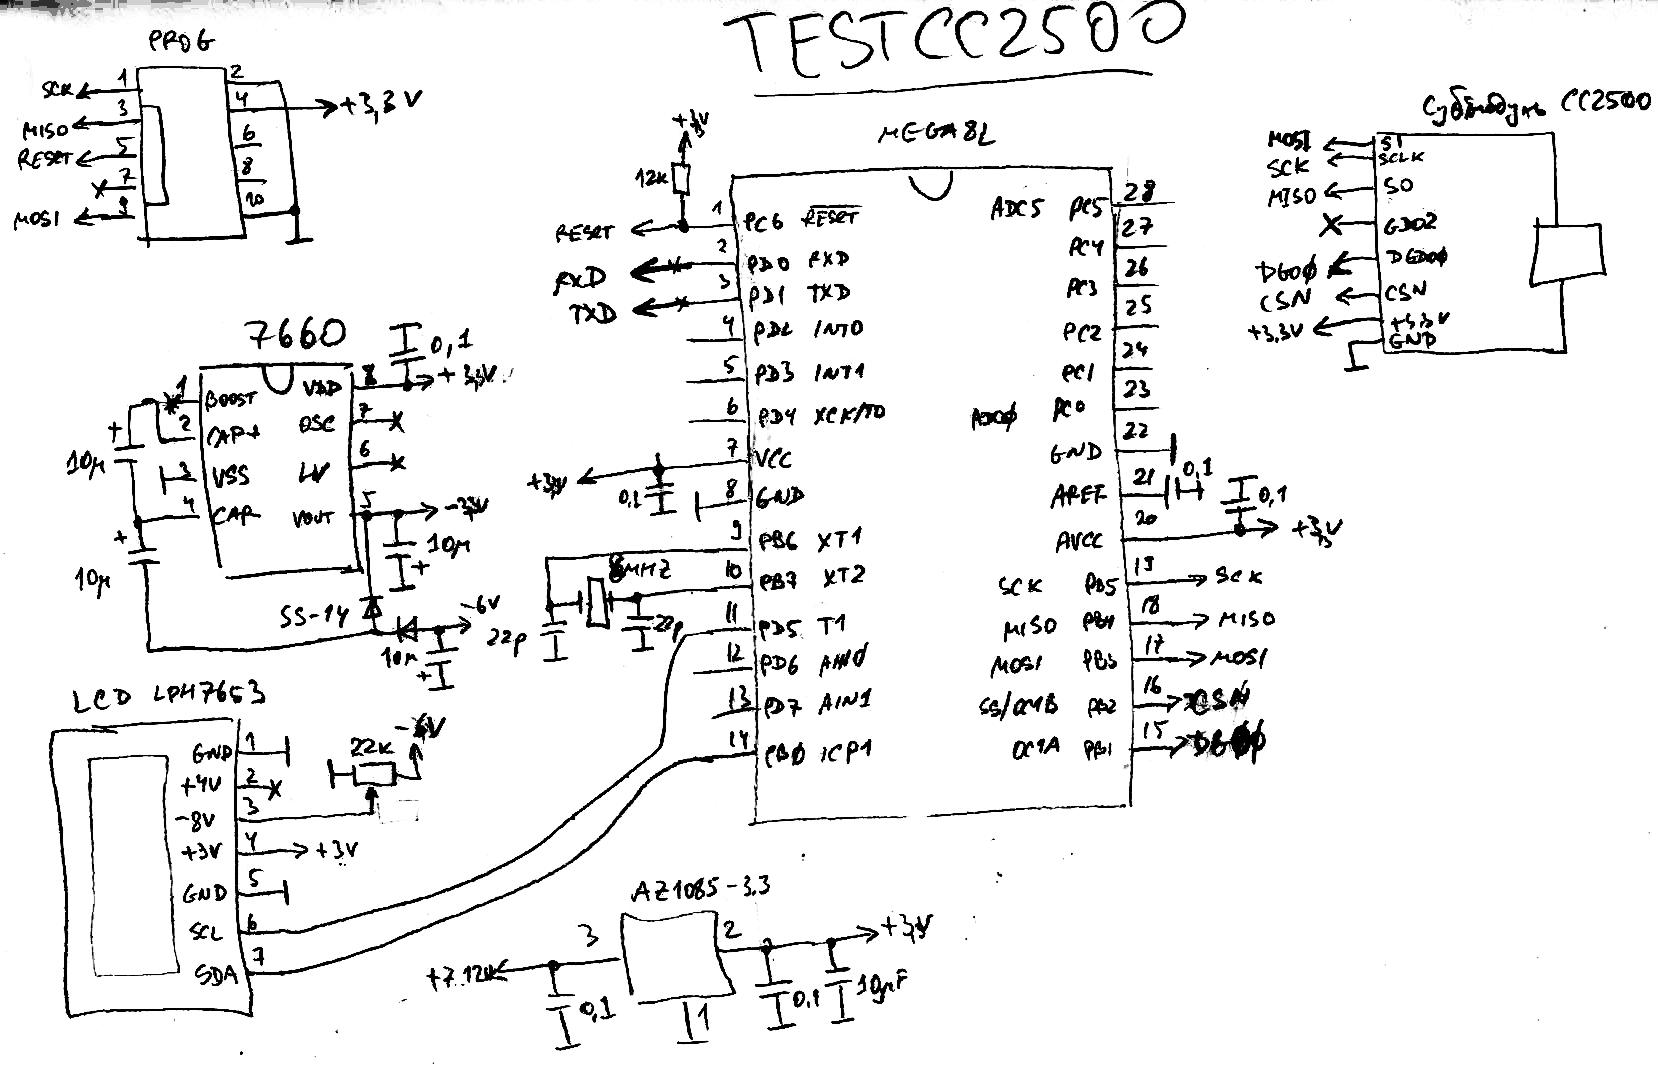 TESTCC2500
PROG
SCK 1 2
3 4 +3,3V
MISO
RESET 5 6
7 8
MOSI 9 10
Субмодуль CC2500
MOSI SI
SCK SCLK
MISO SO
GDO2
DGO0 DGDO0
CSN CSN
+3.3V +3.3V
GND
MEGA8L
12K
RESET 1 PC6 RESET
RXD 2 PD0 RXD
TXD 3 PD1 TXD
4 PD2 INT0
5 PD3 INT1
6 PD4 XCK/T0
7 VCC
0,1
8 GND
9 PB6 XT1
8MHZ
10 PB7 XT2
22p 22p
11 PD5 T1
12 PD6 AIN0
13 PD7 AIN1
14 PB0 ICP1
ADC5 PC5 28
PC4 27
PC3 26
PC2 25
PC1 24
ADC0 PC0 23
GND 22
AREF 21 0,1
0,1
AVCC 20
SCK PB5 19 SCK
MISO PB4 18 MISO
MOSI PB3 17 MOSI
SS/OC1B PB2 16 CSN
OC1A PB1 15
7660
0,1
1 BOOST VDD 8 +3,3V
2 CAP+ OSC 7
10µ
3 VSS LV 6
4 CAP- VOUT 5
10µ
10µ
SS-14
-6V
10µ
LCD LPH7653
GND 1
+4V 2
-8V 3
22K
+3V 4 +3V
GND 5
SCL 6
SDA 7
AZ1085-3.3
3 2
0,1
1
0,1
10µF